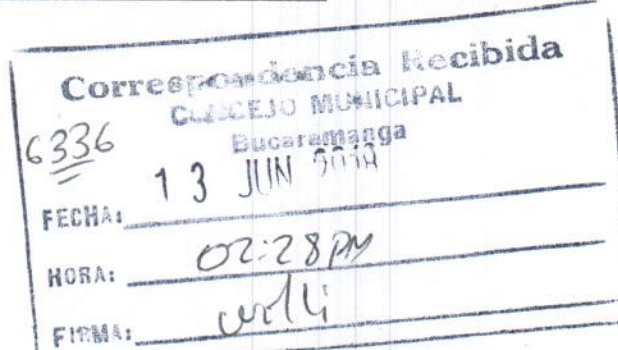 Correspondencia Recibida
CONCEJO MUNICIPAL
Bucaramanga
6336
13 JUN
FECHA:
HORA: 02:28 PM
FIRMA: